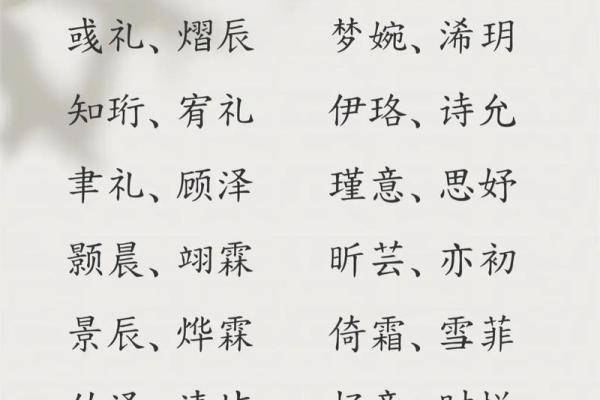 彧礼、熠辰 梦婉、浠玥
知珩、宥礼 伊珞、诗允
聿礼、顾泽 瑾意、思妤
颢晨、翊霖 昕芸、亦初
景辰、烨霖 倚霜、雪菲